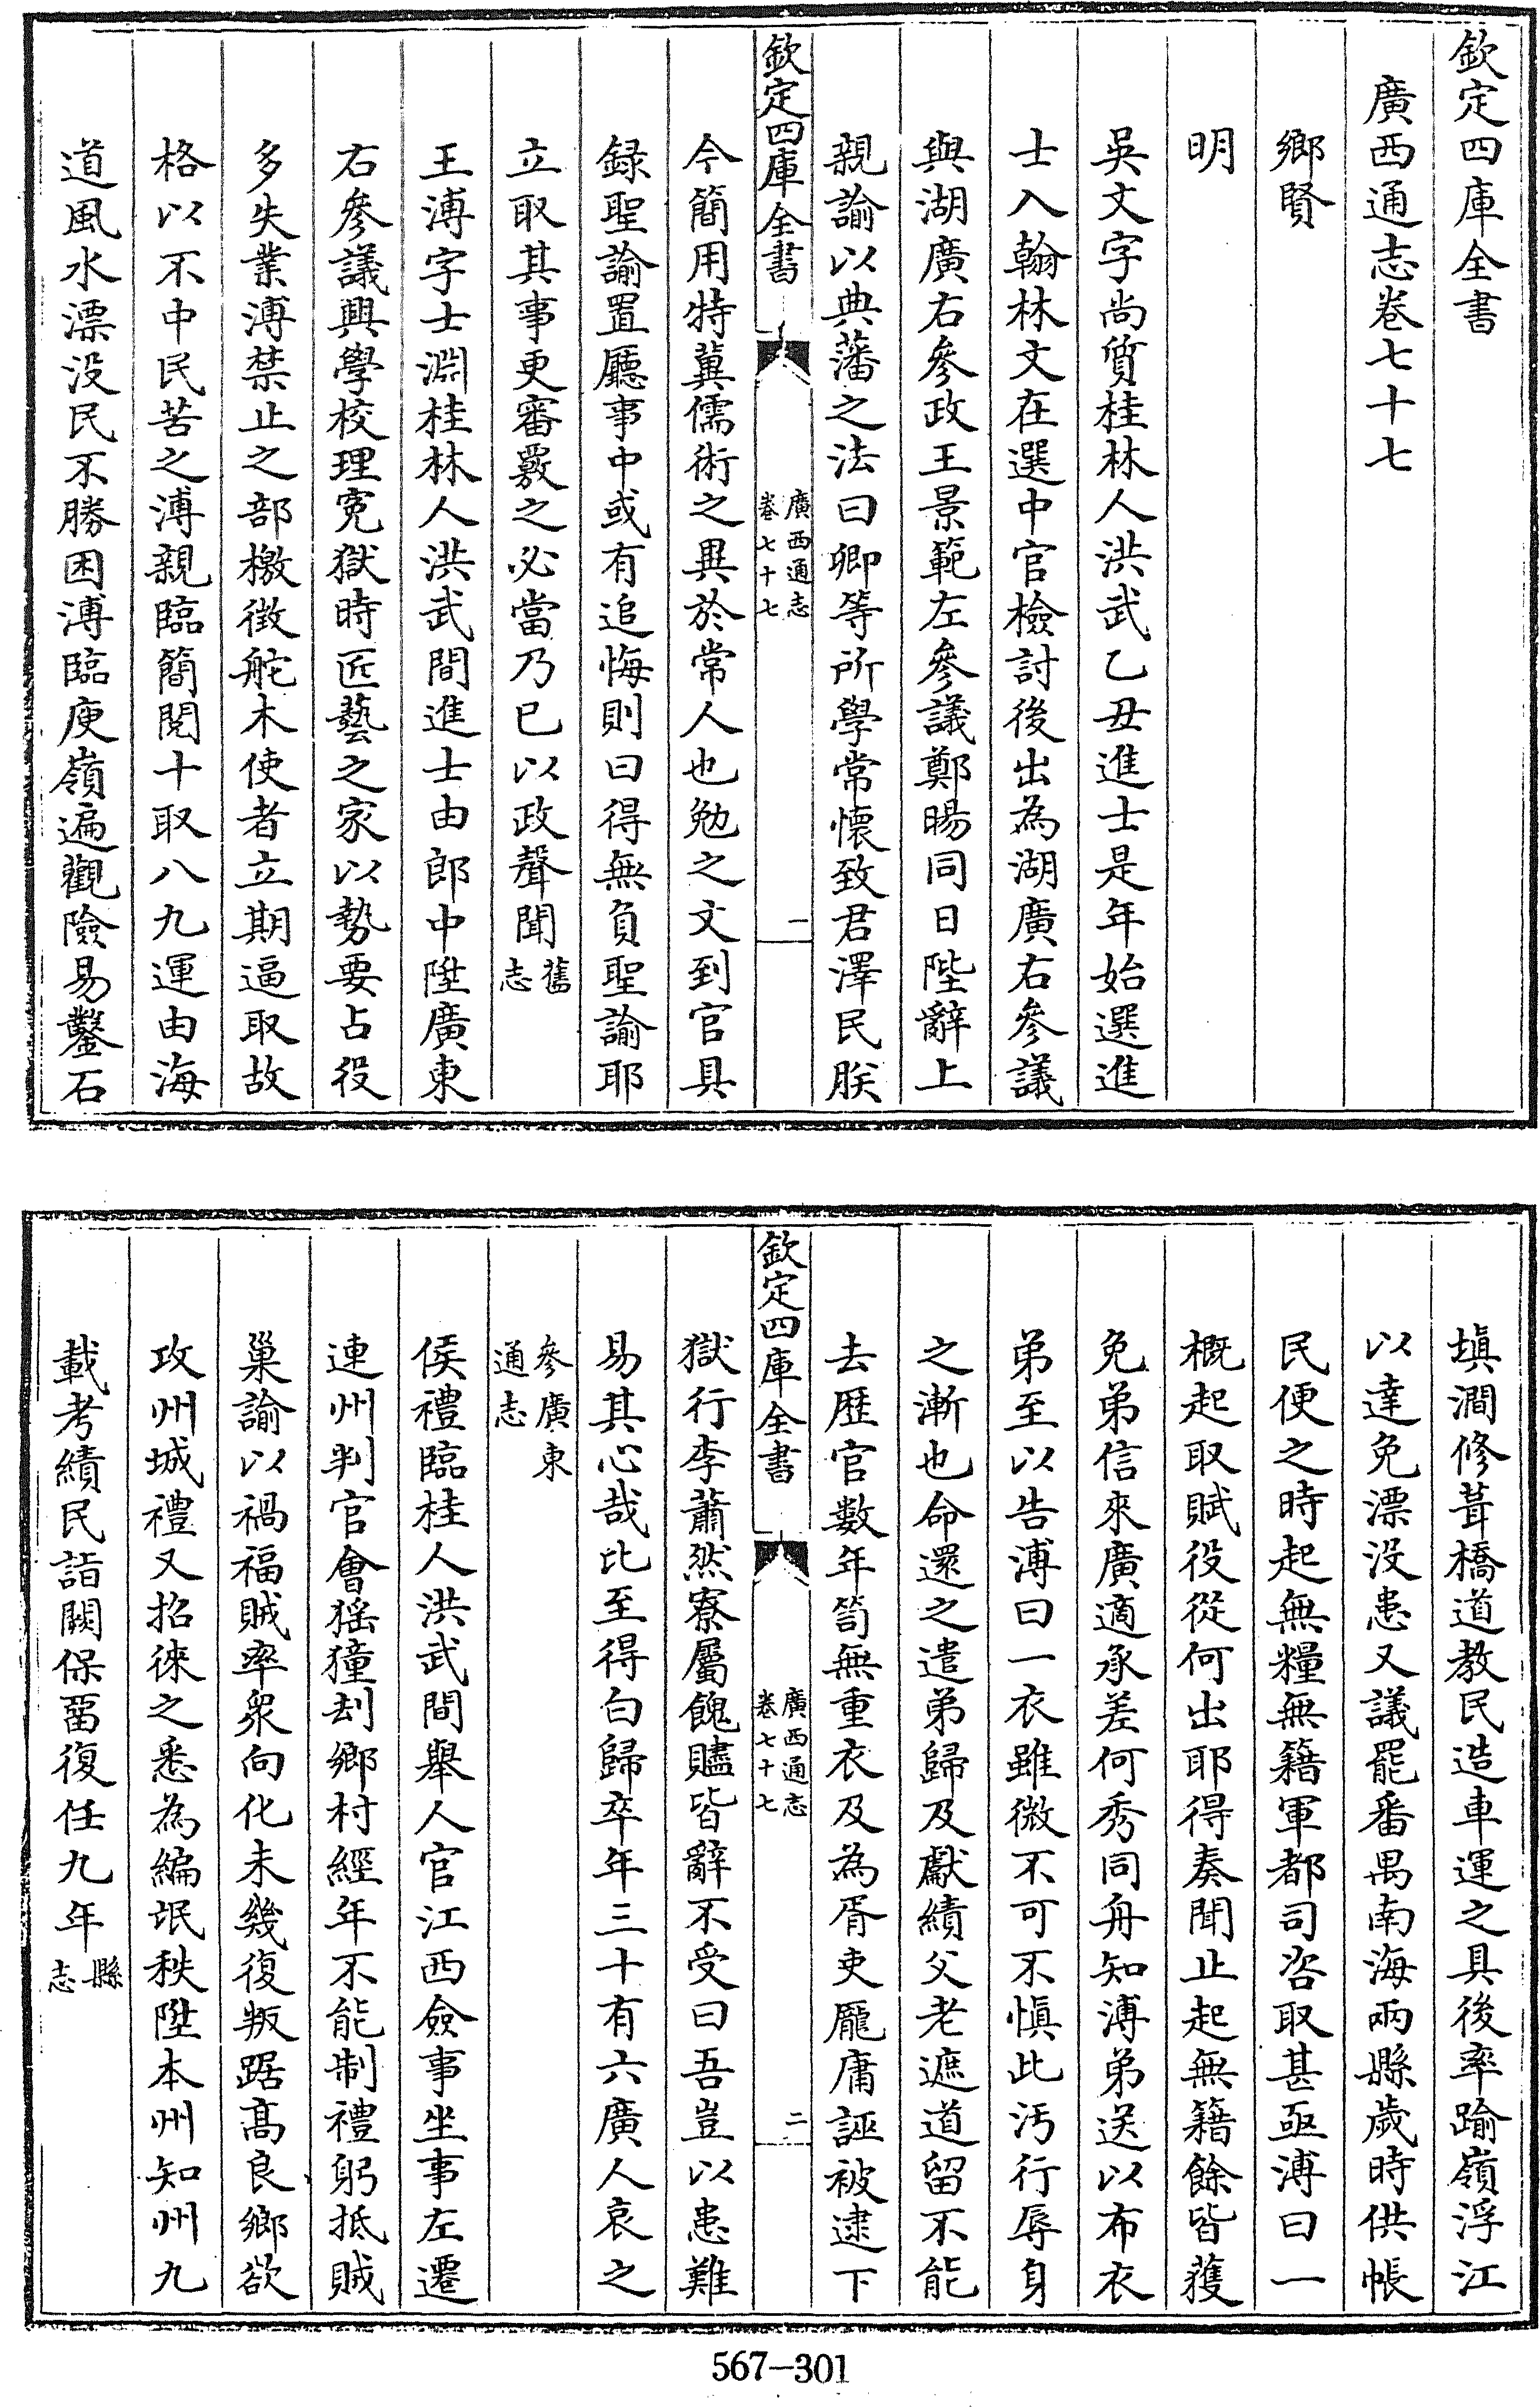 欽定四庫全書
廣西通志卷七十七
鄉賢
明
吳文字尚質桂林人洪武乙丑進士是年始選進
士入翰林文在選中官檢討後出為湖廣右參議
與湖廣右參政王景範左參議鄭暘同日陛辭上
親諭以典藩之法曰卿等所學常懷致君澤民朕
欽定四庫全書
廣西通志
卷七十七
一
今簡用特冀儒術之異於常人也勉之文到官具
録聖諭置廳事中或有追悔則曰得無負聖諭耶
立取其事更審覈之必當乃已以政聲聞舊
志
王溥字士淵桂林人洪武間進士由郎中陞廣東
右參議興學校理寃獄時匠藝之家以勢要占役
多失業溥禁止之部檄徴舵木使者立期逼取故
格以不中民苦之溥親臨簡閱十取八九運由海
道風水漂没民不勝困溥臨庾嶺遍觀險易鑿石
填澗修葺橋道教民造車運之具後率踰嶺浮江
以達免漂没患又議罷番禺南海兩縣歲時供帳
民便之時起無糧無籍軍都司咨取甚亟溥曰一
概起取賦役從何出耶得奏聞止起無籍餘皆獲
免弟信來廣適承差何秀同舟知溥弟送以布衣
弟至以告溥曰一衣雖微不可不慎此汚行辱身
之漸也命還之遣弟歸及獻績父老遮道留不能
去歴官數年笥無重衣及為胥吏龐庸誣被逮下
欽定四庫全書
廣西通志
卷七十七
二
獄行李蕭然寮屬餽贐皆辭不受曰吾豈以患難
易其心哉比至得白歸卒年三十有六廣人哀之
參廣東
通志
侯禮臨桂人洪武間舉人官江西僉事坐事左遷
連州判官會猺獞刦鄉村經年不能制禮躬抵賊
巢諭以禍福賊率衆向化未幾復叛踞髙良鄉欲
攻州城禮又招徠之悉為編氓秩陞本州知州九
載考績民詣闕保畱復任九年縣
志
567—301